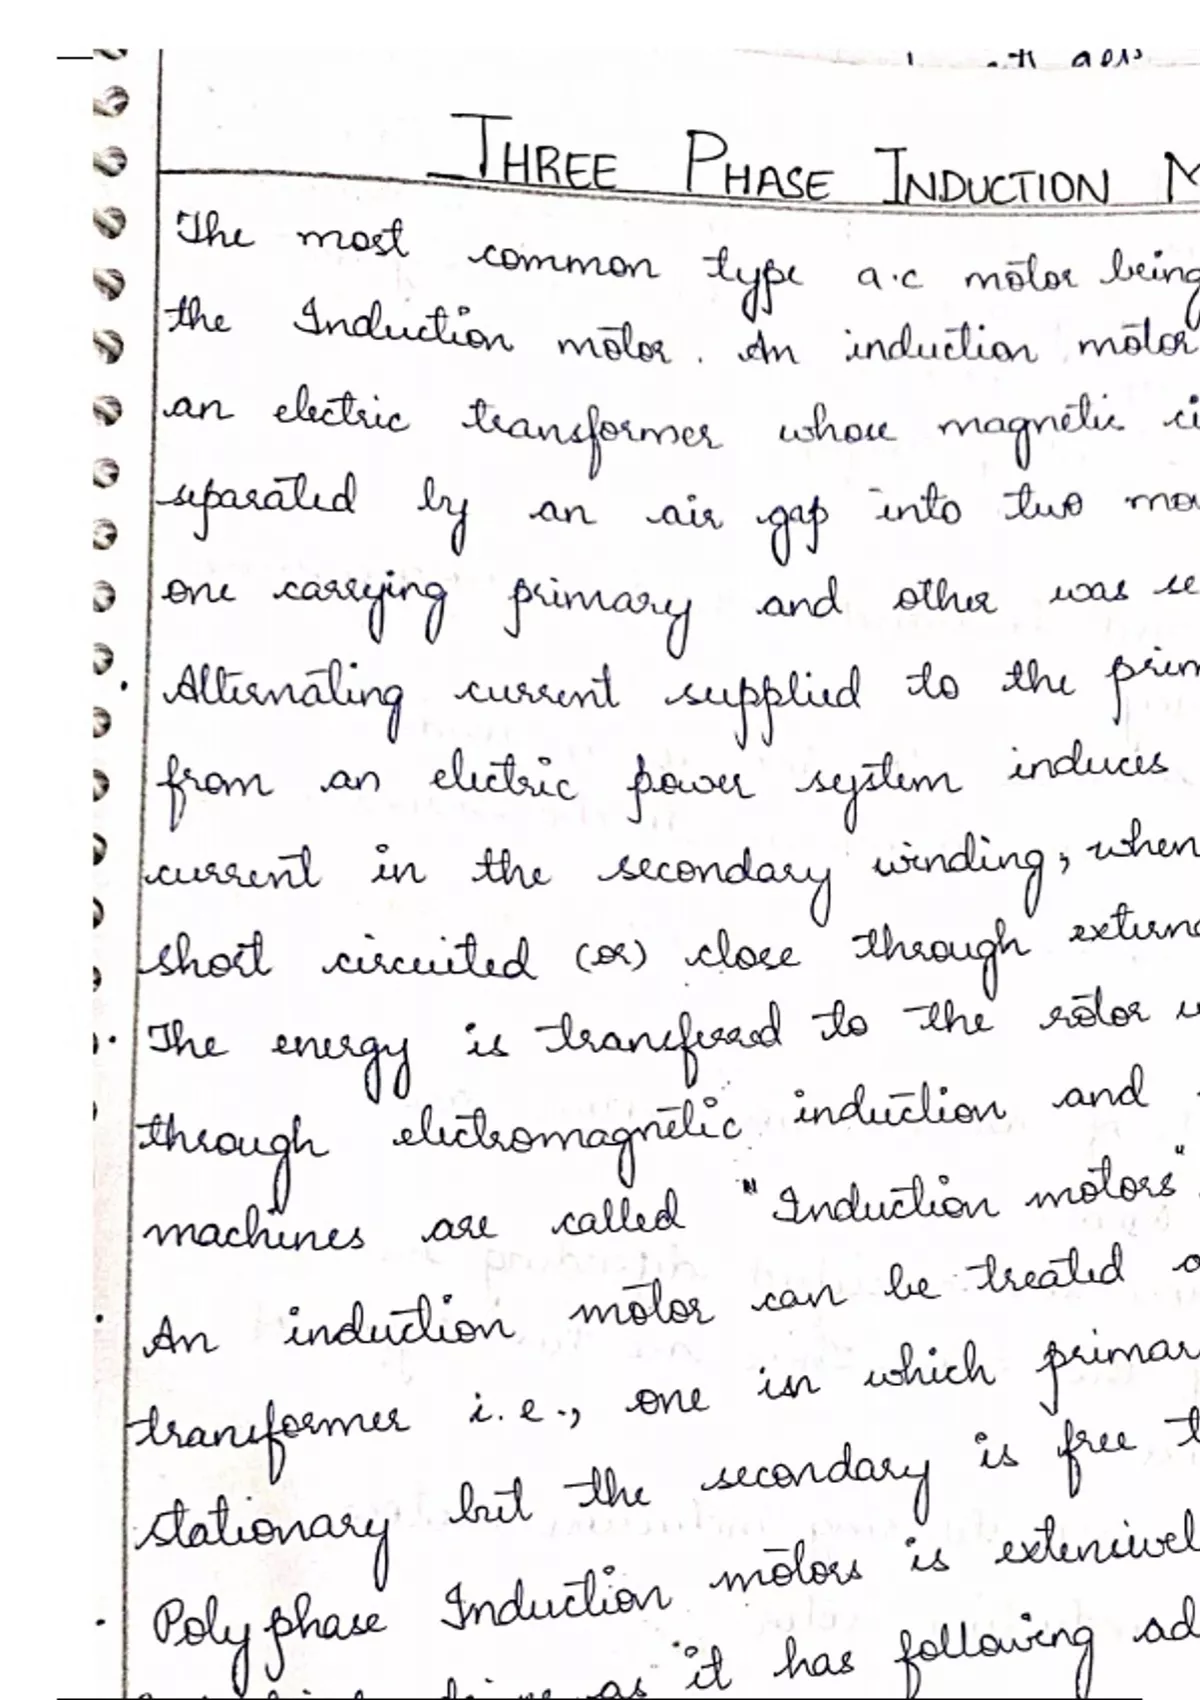 THREE PHASE INDUCTION M
The most common type a.c motor being
the Induction motor. An induction motor
an electric transformer whose magnetic ci
separated by an air gap into two mo
one carrying primary and other was se
Alternating current supplied to the prim
from an electric power system induces
current in the secondary winding, when
short circuited (or) close through externa
The energy is transferred to the rotor
through electromagnetic induction and
machines are called "Induction motors".
An induction motor can be treated a
transformer i.e., one in which primar
stationary but the secondary is free t
Polyphase Induction motors is extensivel
as it has following ad